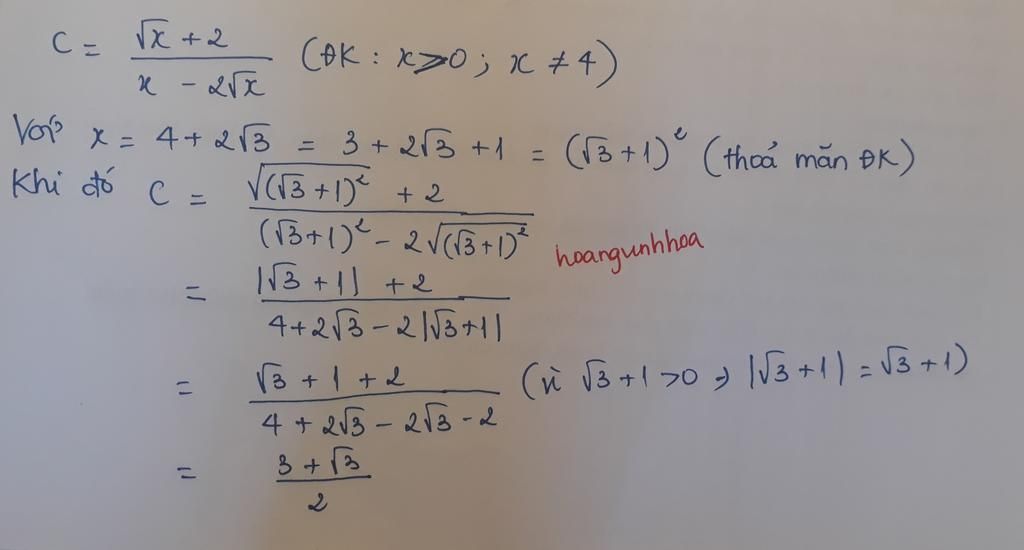 C = \frac{\sqrt{x} + 2}{x - 2\sqrt{x}} (ĐK : x > 0 ; x ≠ 4)
Với x = 4 + 2√3 = 3 + 2√3 + 1 = (√3 + 1)² (thoả mãn ĐK)
Khi đó C = \frac{\sqrt{(\sqrt{3} + 1)^2} + 2}{(\sqrt{3} + 1)^2 - 2\sqrt{(\sqrt{3} + 1)^2}}
hoangunhhoa
= \frac{|\sqrt{3} + 1| + 2}{4 + 2\sqrt{3} - 2|\sqrt{3} + 1|}
= \frac{\sqrt{3} + 1 + 2}{4 + 2\sqrt{3} - 2\sqrt{3} - 2} (vì √3 + 1 > 0 → |√3 + 1| = √3 + 1)
= \frac{3 + \sqrt{3}}{2}